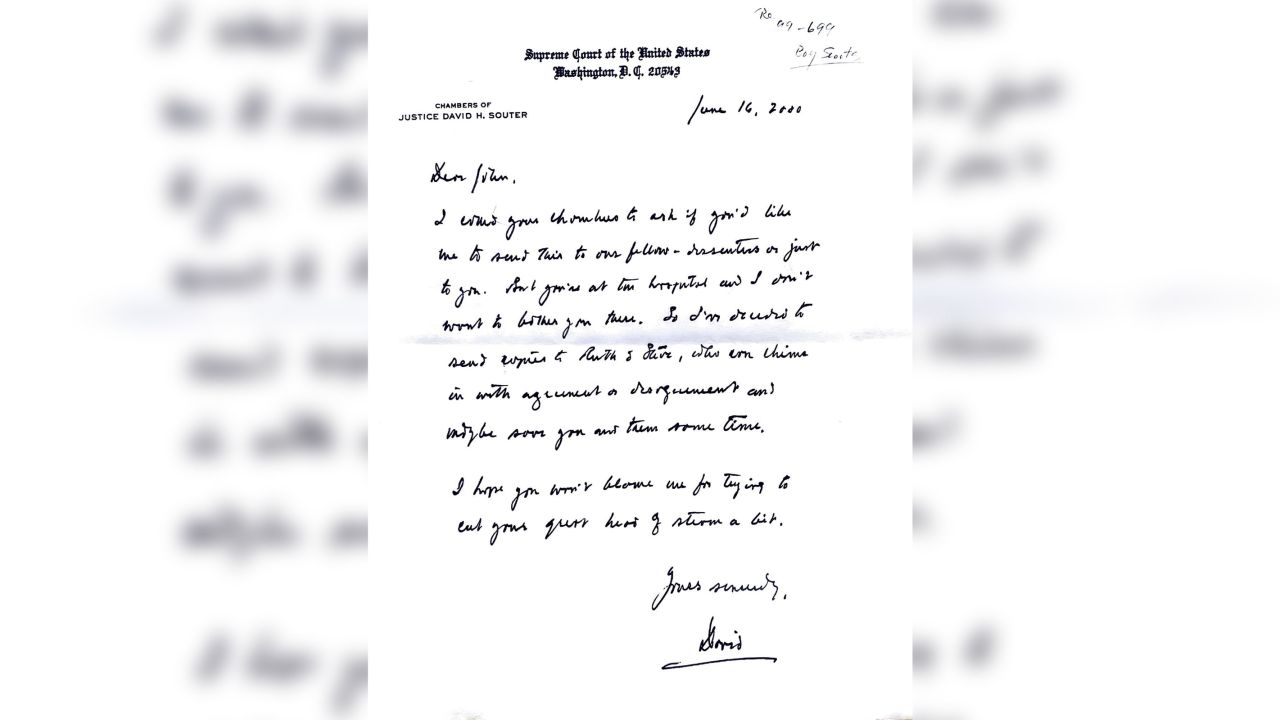 Re 99-699
Boy Scouts
Supreme Court of the United States
Washington, D. C. 20543
CHAMBERS OF
JUSTICE DAVID H. SOUTER
June 16, 2000
Dear John,
I called your chambers to ask if you'd like
me to send this to our fellow-dissenters or just
to you. But you're at the hospital and I don't
want to bother you there. So I've decided to
send copies to Ruth & Steve, who can chime
in with agreement or disagreement and
maybe save you and them some time.
I hope you won't blame me for trying to
cut your great head of steam a bit.
Yours sincerely,
David